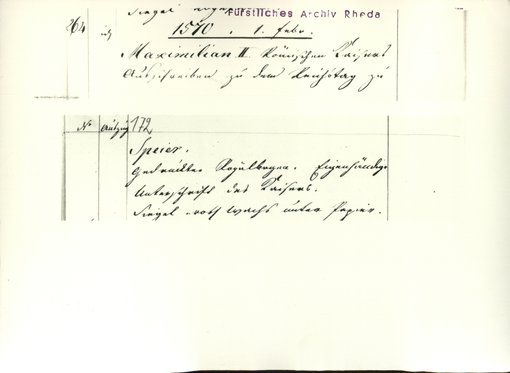 Siegel
Fürstliches Archiv Rheda
264
1570. 1. Febr.
Maximilian II Römischen Kaisers
Ausschreiben zu dem Reichstag zu
No Auszug 172
Speier.
Gedruckter Regalbogen. Eigenhändige
Unterschrift des Kaisers.
Siegel roth Wachs unter Papier.